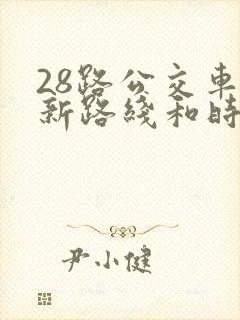 28路公交車
新路綫和時
尹小健